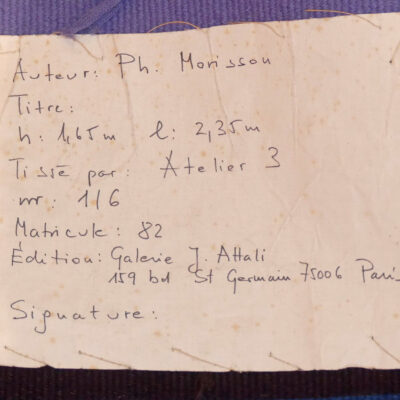 Auteur: Ph. Morisson
Titre:
h: 1,65m l: 2,35m
Tissé par: Atelier 3
nr: 1/6
Matricule: 82
Édition: Galerie J. Attali
159 bd St Germain 75006 Paris
Signature: